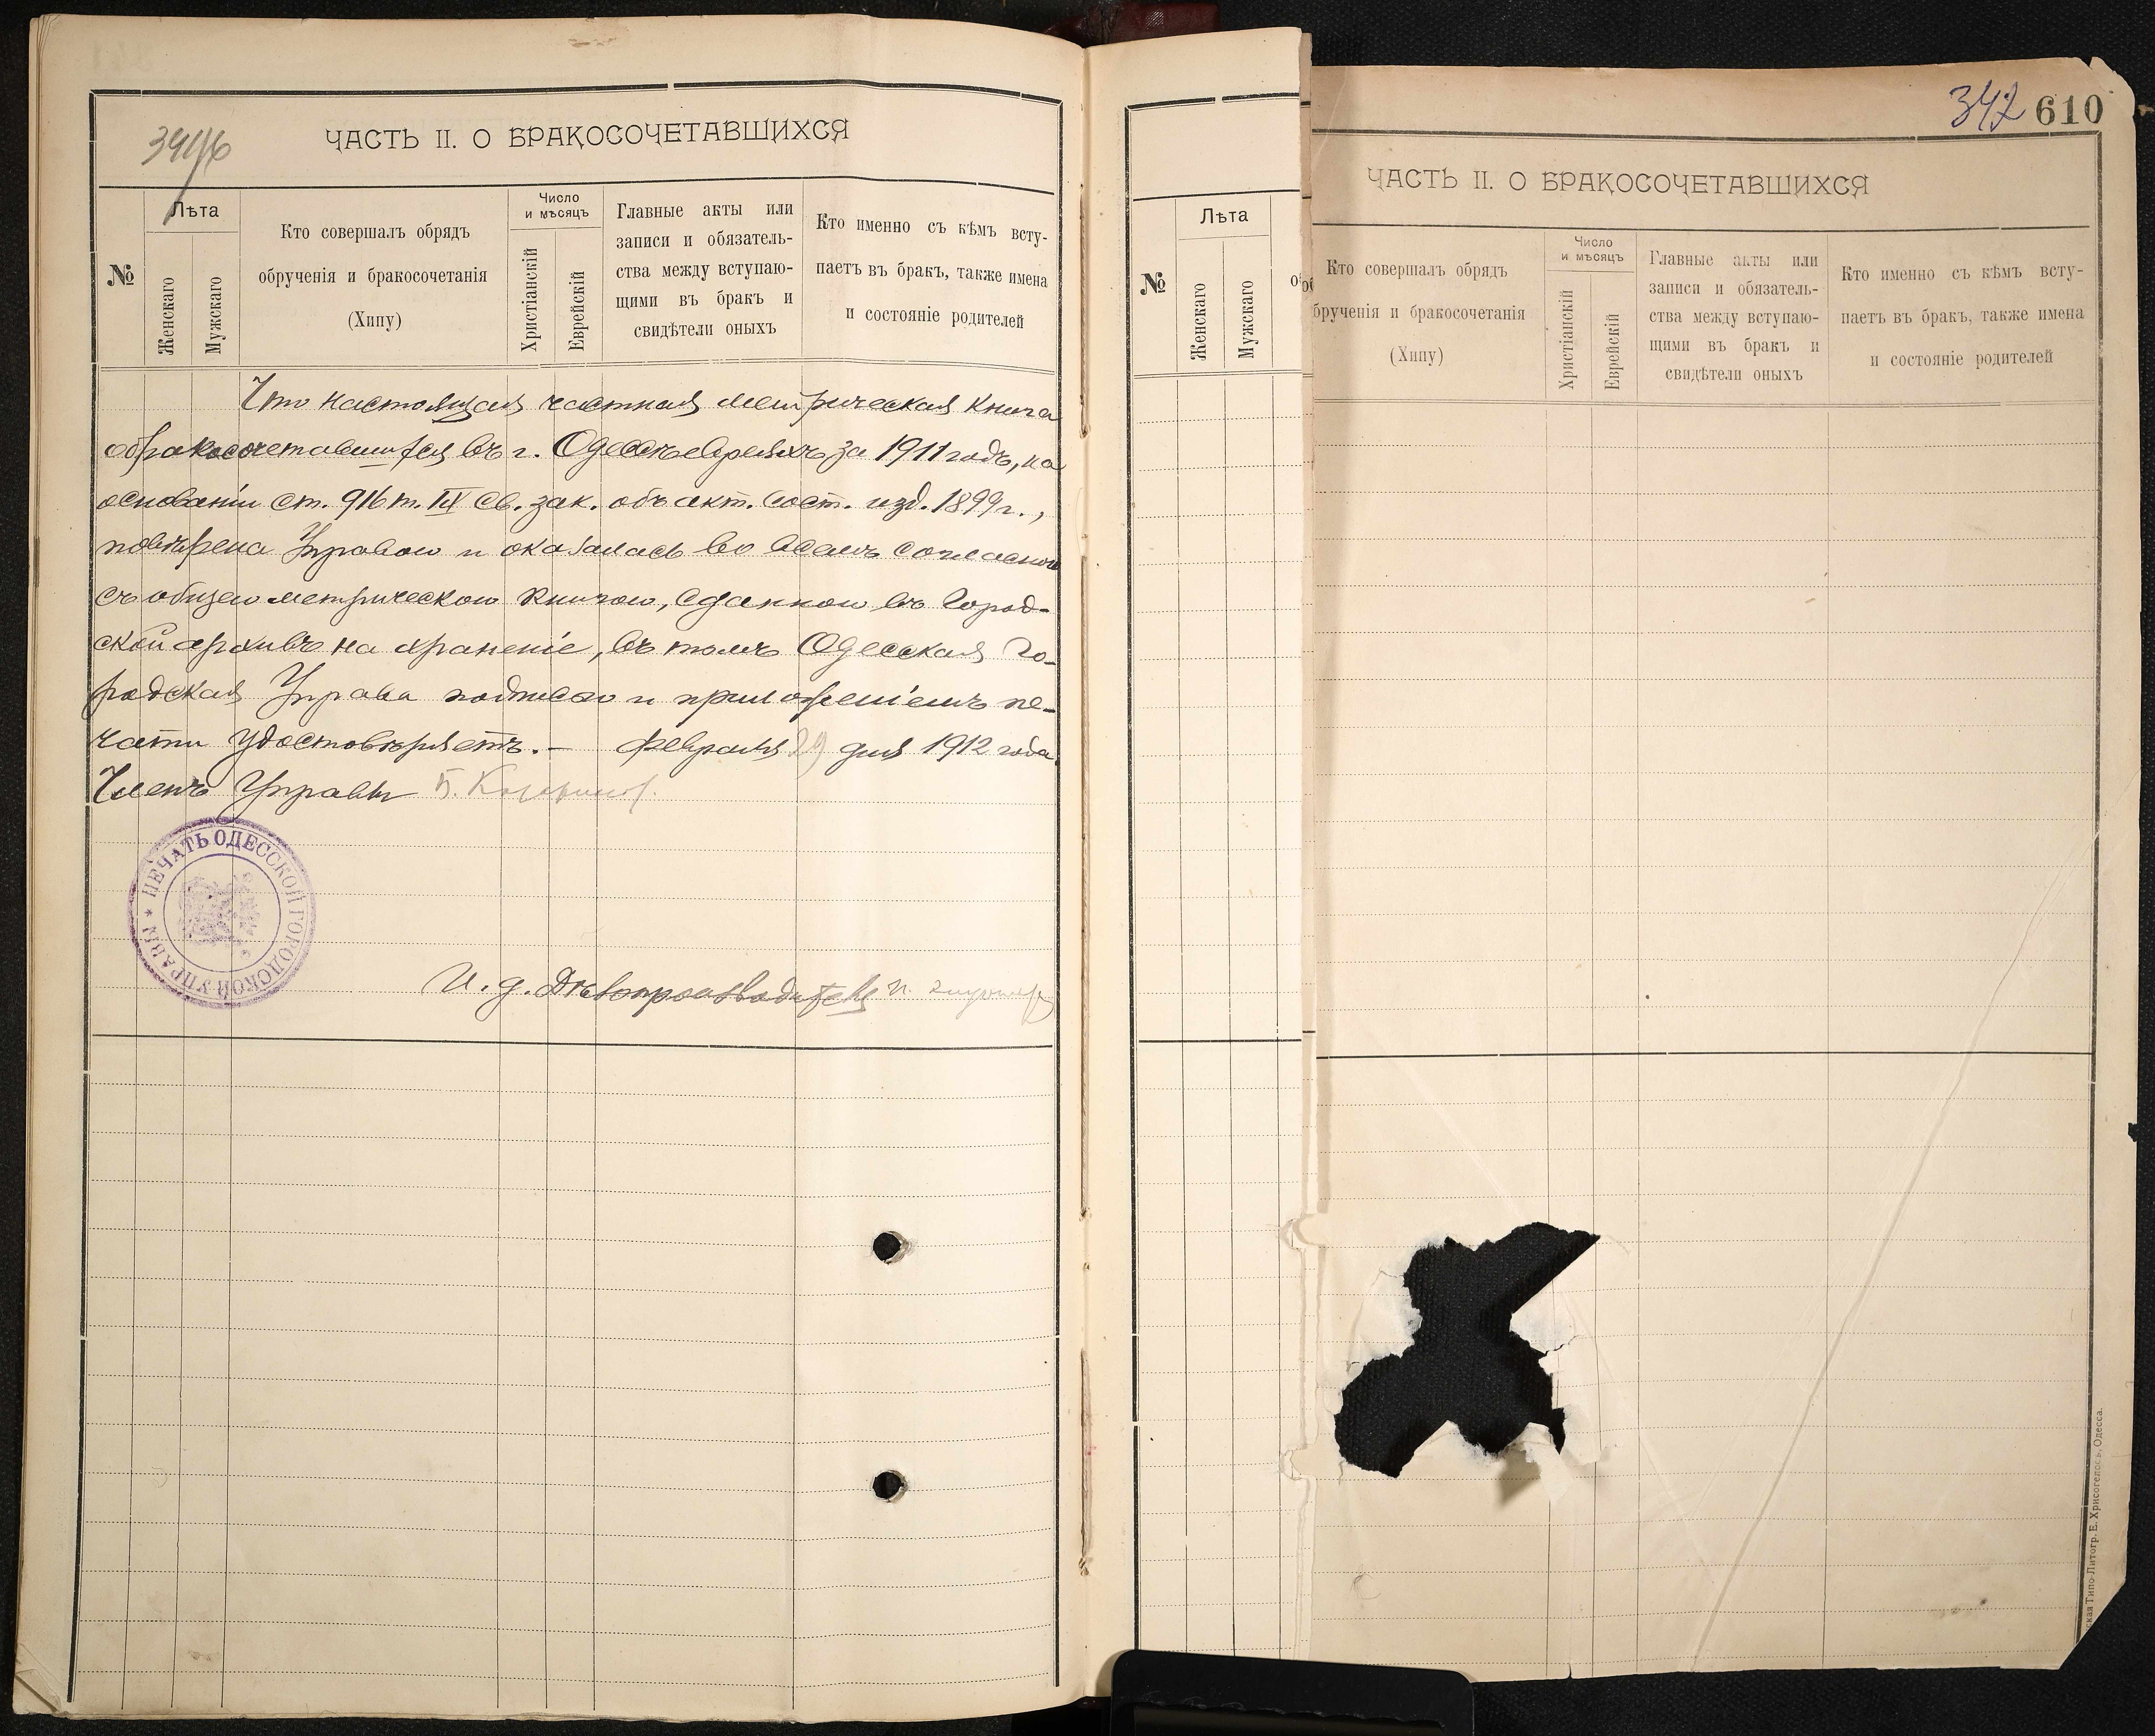 ЧАСТЬ II. О БРАКОСОЧЕТАВШИХСЯ
№
Лѣта
Женскаго
Мужскаго
Кто совершалъ обрядъ
обрученія и бракосочетанія
(Хипу)
Число
и мѣсяцъ
Христіанскій
Еврейскій
Главные акты или
записи и обязатель-
ства между вступаю-
щими въ бракъ и
свидѣтели оныхъ
Кто именно съ кѣмъ всту-
паетъ въ бракъ, также имена
и состояніе родителей
Что настоящая частная метрическая книга
о бракосочетавшихся въ г. Одессѣ евреяхъ за 1911 годъ, на
основаніи ст. 916 т. IX Св. зак. объ акт. сост. изд. 1899 г.,
повѣрена Управою и оказалась во всемъ согласною
съ общею метрическою книгою, сданною въ Город-
ской архивъ на храненіе, въ томъ Одесская Го-
родская Управа подписью и приложеніемъ пе-
чати удостовѣряетъ.— Февраля 29 дня 1912 года
Членъ Управы
ПЕЧАТЬ ОДЕССКОЙ ГОРОДСКОЙ УПРАВЫ *
И. д. Дѣлопроизводителя
№
Лѣта
Женскаго
Мужскаго
342 610
ЧАСТЬ II. О БРАКОСОЧЕТАВШИХСЯ
Кто совершалъ обрядъ
брученія и бракосочетанія
(Хипу)
Число
и мѣсяцъ
Христіанскій
Еврейскій
Главные акты или
записи и обязатель-
ства между вступаю-
щими въ бракъ и
свидѣтели оныхъ
Кто именно съ кѣмъ всту-
паетъ въ бракъ, также имена
и состояніе родителей
кая Типо-Литогр. Е. Хрисогелосъ, Одесса.